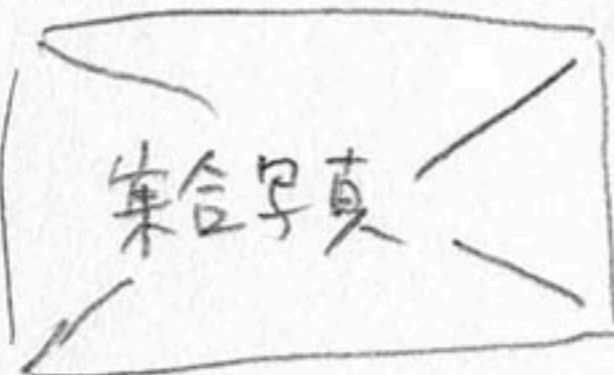 集合写真